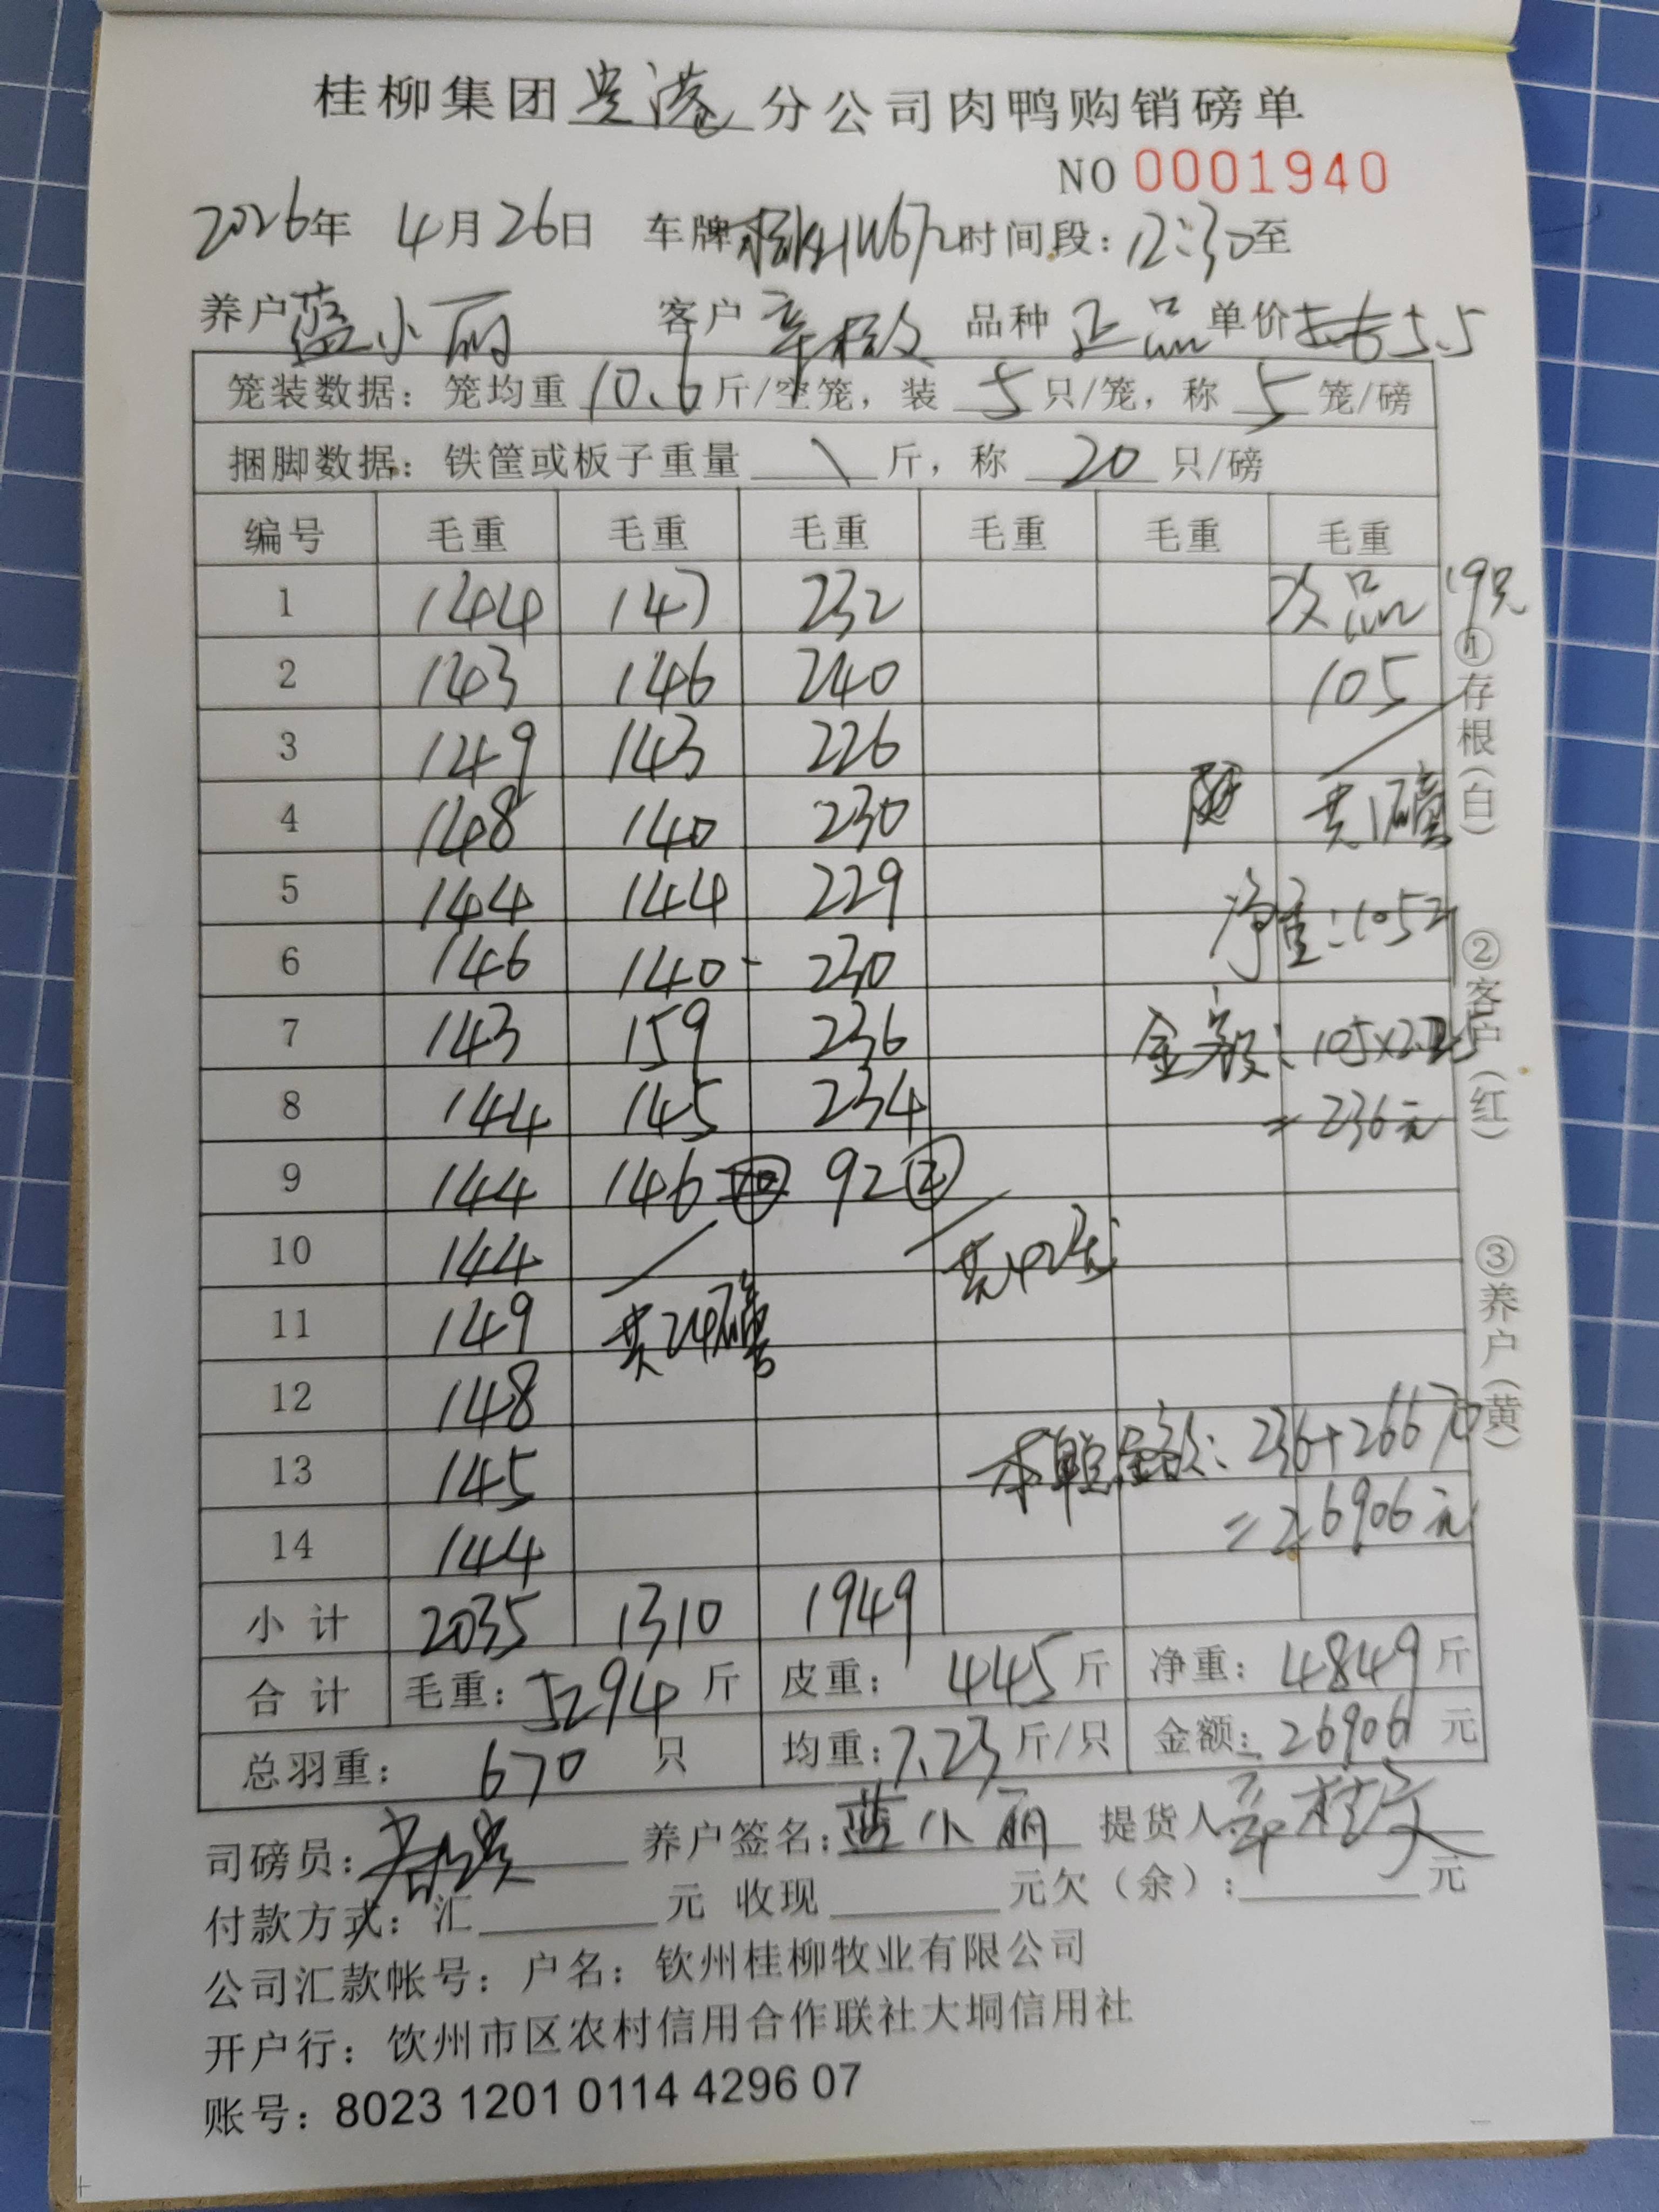 桂柳集团贵港分公司肉鸭购销磅单
NO 0001940
2026年 4月26日 车牌 时间段：12:30至
养户蓝小丽 客户 品种 正品 单价 5.5
笼装数据：笼均重 10.6 斤/空笼，装 5 只/笼，称 5 笼/磅
捆脚数据：铁筐或板子重量 \ 斤，称 20 只/磅
编号 毛重 毛重 毛重 毛重 毛重 毛重
1 144 147 232 次品 19只
2 143 146 240 105
3 149 143 226
4 148 140 230 共1磅
5 144 144 229 净重：105斤
6 146 140 230
7 143 159 236 金额：105×2.25
8 144 145 234 =236元
9 144 146 92②
10 144 共42笼
11 149 共24磅
12 148
13 145 本单总金额：236+26670
14 144 =26906元
小计 2035 1310 1949
合计 毛重：5294 斤 皮重：445 斤 净重：4849 斤
总羽重：670 只 均重：7.23 斤/只 金额：26906 元
司磅员： 养户签名：蓝小丽 提货人
付款方式：汇 元 收现 元欠（余）： 元
公司汇款帐号：户名：钦州桂柳牧业有限公司
开户行：钦州市区农村信用合作联社大垌信用社
账号：8023 1201 0114 4296 07
①存根（白）
②客户（红）
③养户（黄）